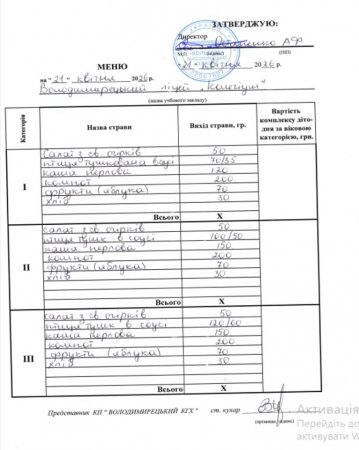 ЗАТВЕРДЖУЮ:
Директор
Остапенко А.Ф
М.П. (підпис) (ПІП)
МЕНЮ
на "21" квітня 2026р. "21" квітня 2026р.
Володимирецький ліцей "Колегіум"
(назва учбового закладу)
Категорія Назва страви Вихід страви, гр. Вартість комплексу діто-дня за віковою категорією, грн.
I
Салат з св. огірків 50
птиця тушкована в соусі 70/35
каша перлова 120
компот 200
фрукти (яблука) 70
хліб 30
Всього X
II
салат з св. огірків 50
птиця тушк в соусі 100/50
каша перлова 150
компот 200
фрукти (яблука) 70
хліб 30
Всього X
III
салат з св. огірків 50
птиця тушк в соусі 120/60
каша перлова 150
компот 200
фрукти (яблука) 70
хліб 30
Всього X
Представник КП " ВОЛОДИМИРЕЦЬКИЙ КГХ " ст. кухар
Активація
Перейдіть до
активувати W